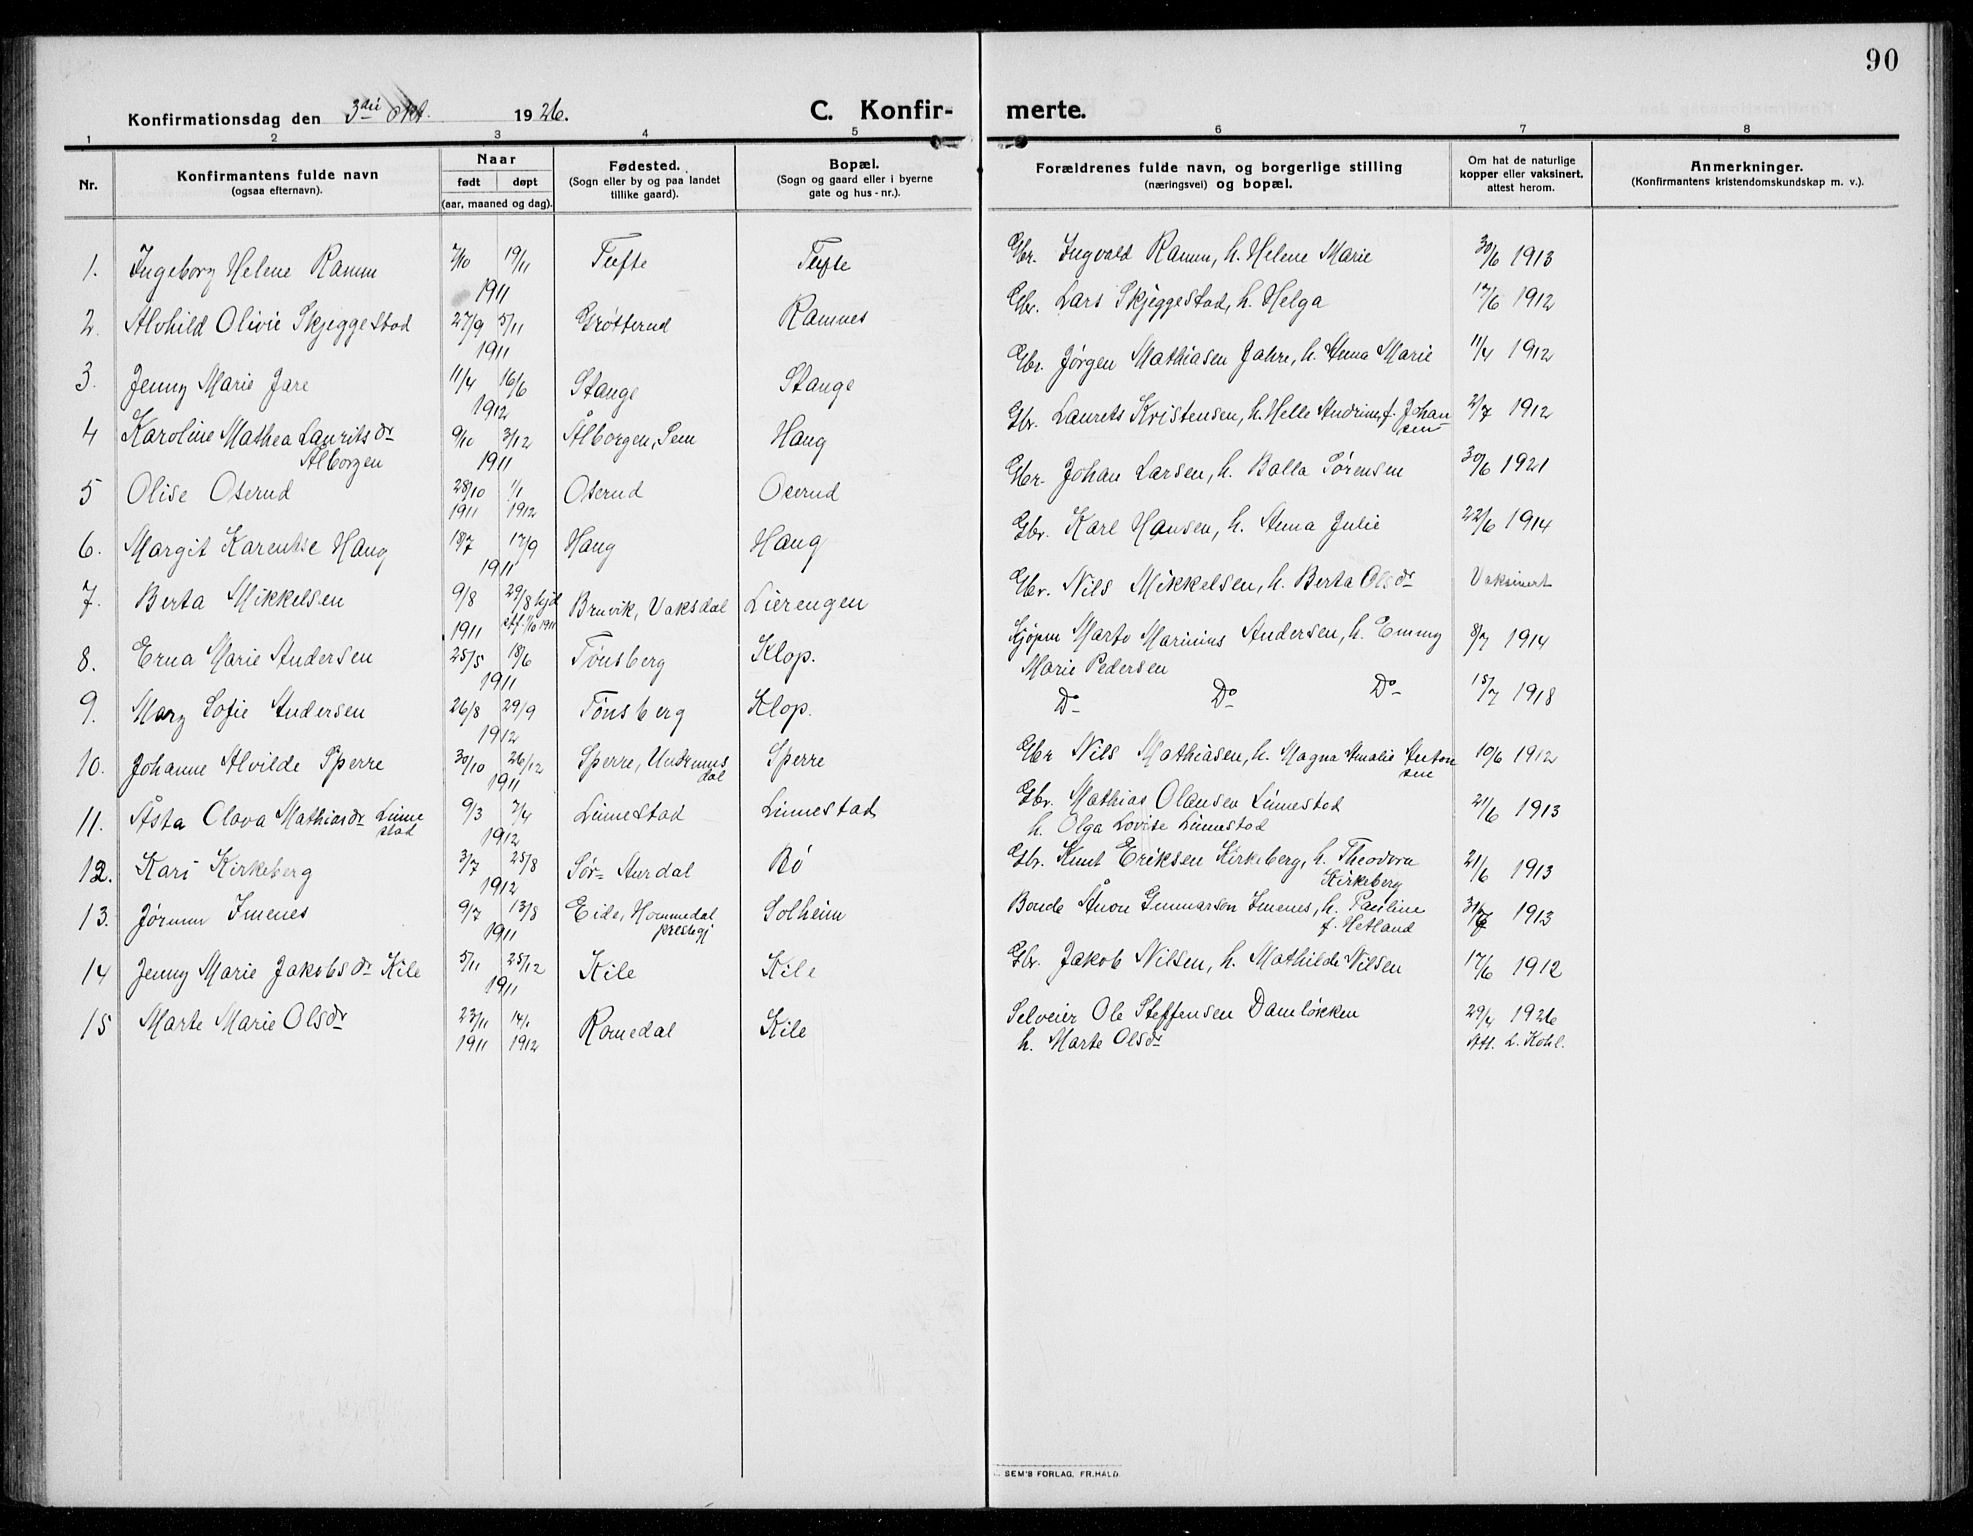 90
Konfirmationsdag den 3die Okt. 1926.
C. Konfir-merte.
1 2 3 4 5 6 7 8
Nr.
Konfirmantens fulde navn
(ogsaa efternavn).
Naar
født døpt
(aar, maaned og dag).
Fødested.
(Sogn eller by og paa landet
tillike gaard).
Bopæl.
(Sogn og gaard eller i byerne
gate og hus-nr.).
Forældrenes fulde navn, og borgerlige stilling
(næringsvei) og bopæl.
Om hat de naturlige
kopper eller vaksinert,
attest herom.
Anmerkninger.
(Konfirmantens kristendomskundskap m. v.).
1. Ingeborg Helene Ramm 7/10 19/11 1911 Tufte Tufte Gbr. Ingvald Ramm, h. Helene Marie 30/6 1913
2. Alvhild Olivie Skjeggestad 27/9 5/11 1911 Grøtterud Ramnes Gbr. Lars Skjeggestad, h. Helga 17/6 1912
3. Jenny Marie Jare 11/4 16/6 1912 Stange Stange Gbr. Jørgen Mathiasen Jahre, h. Anna Marie 11/4 1912
4 Karoline Mathea Lauritsdr 9/10 3/12 Ålborgen, Sem Haug Gbr. Laurets Kristensen, h. Helle Andrine f. Johan 2/7 1912
Ålborgen 1911 sen
5 Olise Oserud 28/10 1/1 Oserud Oserud Gbr. Johan Larsen, h. Balla Sørensen 30/6 1921
1911 1912
6. Margit Karentse Haug 18/7 17/9 1911 Haug Haug Gbr. Karl Hansen, h. Anna Julie 22/6 1914
7. Berta Mikkelsen 9/8 29/8 hjd Bruvik, Vaksdal Lierengen Gbr. Nils Mikkelsen, h. Berta Olsdr Vaksinert
1911 stf. 1/10 1911
8. Erna Marie Andersen 25/5 18/6 1911 Tønsberg Klop. Kjøpm Marto Marinius Andersen, h. Emmy 8/7 1914
Marie Pedersen
9. Mary Sofie Andersen 26/8 29/9 1912 Tønsberg Klop. Do Do Do 15/7 1918
10. Johanne Alvilde Sperre 30/10 26/12 Sperre, Undrums Sperre Gbr Nils Mathiasen, h. Magna Amalie Anton 10/6 1912
1911 dal sen
11. Åsta Olava Mathiasdr Linne 9/3 7/4 Linnestad Linnestad Gbr. Mathias Olausen Linnestad 21/6 1913
stad 1912 h. Olga Lovise Linnestad
12. Kari Kirkeberg 3/7 25/8 1912 Sør-Aurdal Bø Gbr. Knut Eriksen Kirkeberg, h. Theodora 21/6 1913
Kirkeberg
13. Jørunn Imenes 9/7 13/8 Eide, Hommedal Solheim Bonde Ånon Gunnarson Imenes, h. Pauline 1913
1911 prestegj f. Hetland
14 Jenny Marie Jakobsdr Kile 5/11 25/12 1911 Kile Kile Gbr. Jakob Nilsen, h. Mathilde Nilsen 17/6 1912
15 Marte Marie Olsdr 23/11 14/1 Romedal Kile Selveier Ole Steffensen Damløkken 29/4 1926
1911 1912 h. Marte Olsdr Att. L. Kohl.
SEM'S FORLAG, FR.HALD.